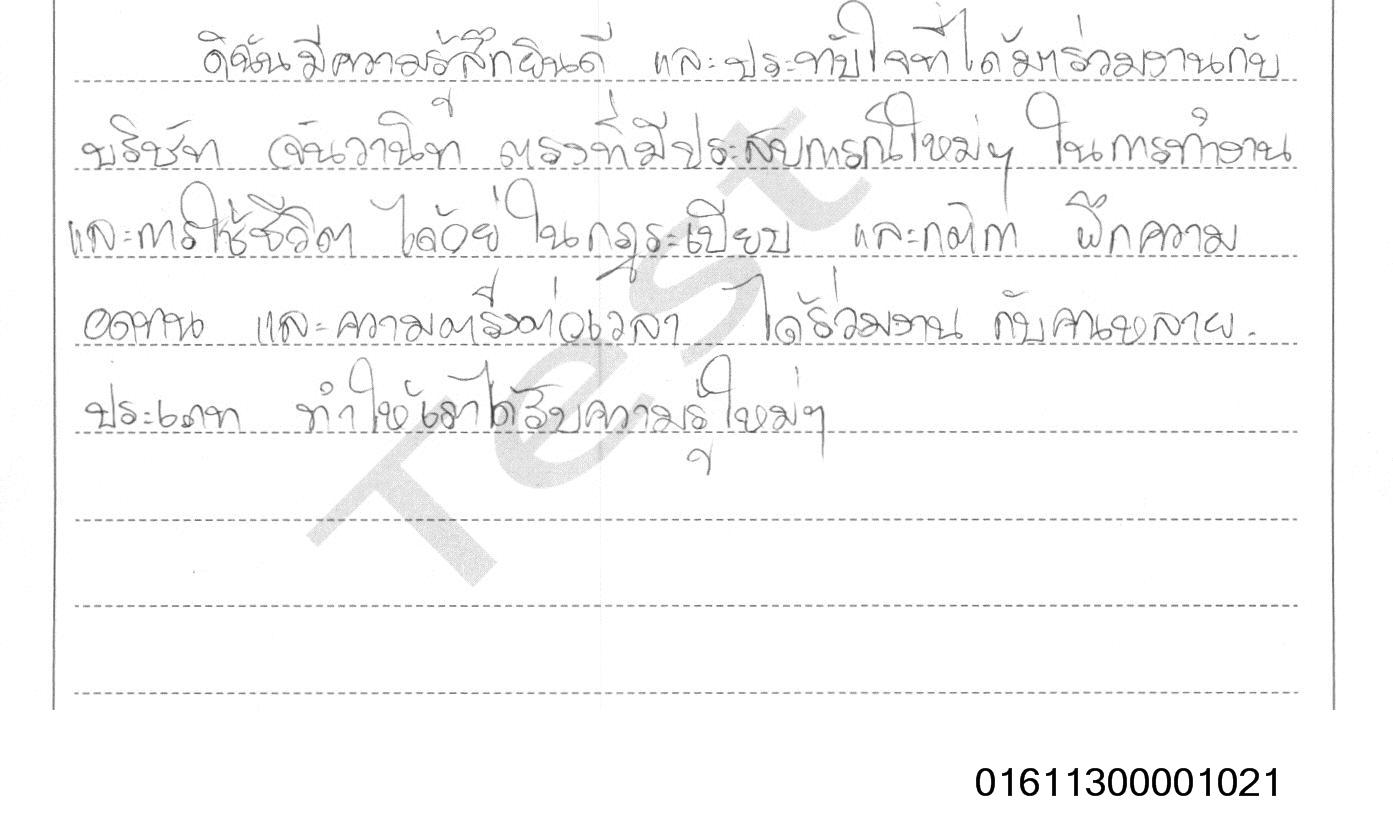 ดิฉันมีความรู้สึกยินดี และประทับใจที่ได้มาร่วมงานกับ
บริษัท จันวานิชย์ ตรงที่มีประสบการณ์ใหม่ๆ ในการทำงาน
และการใช้ชีวิต ได้อยู่ในกฎระเบียบ และกติกา ฝึกความ
อดทน และความตรงต่อเวลา ได้ร่วมงาน กับคนหลาย
ประเภท ทำให้เราได้รับความรู้ใหม่ๆ
Test
01611300001021